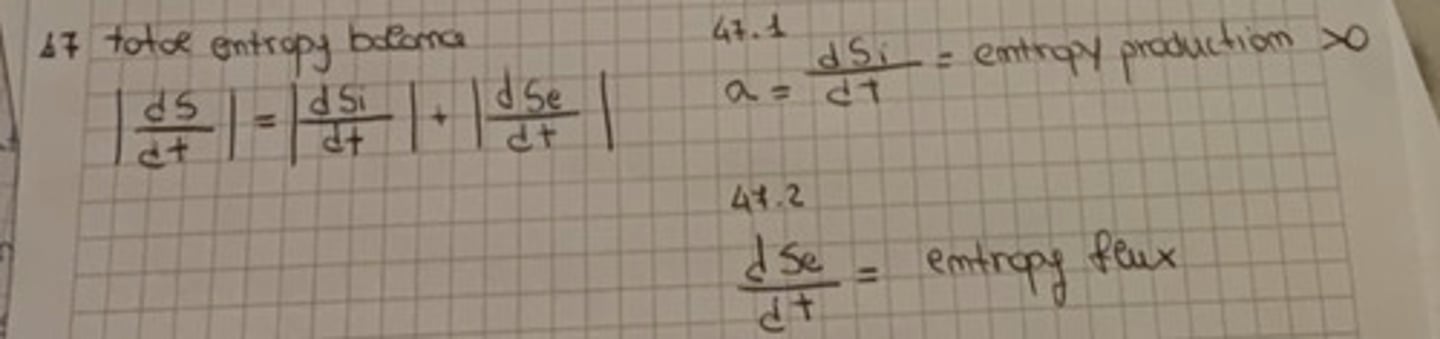 47 totoe entropy balance
|dS/dt| = |dSi/dt| + |dSe/dt|
47.1
a = dSi/dt = entropy production >0
47.2
dSe/dt = entropy flux